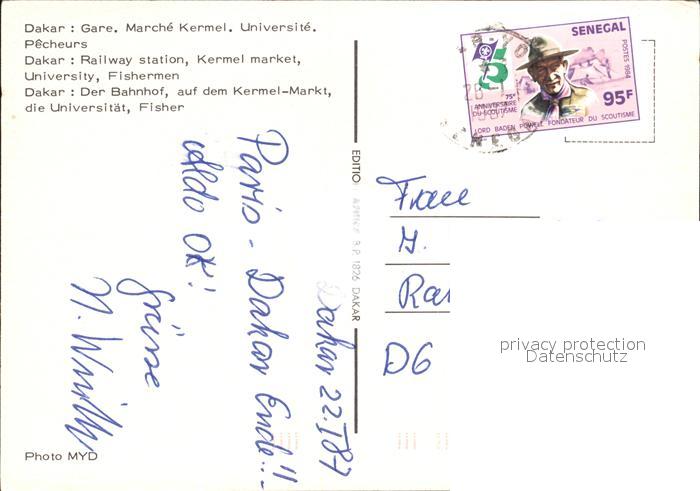 Dakar : Gare. Marché Kermel. Université.
Pêcheurs
Dakar : Railway station, Kermel market,
University, Fishermen
Dakar : Der Bahnhof, auf dem Kermel-Markt,
die Universität, Fisher
SENEGAL
POSTES 1984
75e
ANNIVERSAIRE
DU SCOUTISME
95F
LORD BADEN POWELL FONDATEUR DU SCOUTISME
EDITION B.P. 1826 DAKAR
Dakar 22.I 87
Paris - Dakar Ende!!
aldo OK!
Grüsse
Frau
D6
privacy protection
Datenschutz
Photo MYD